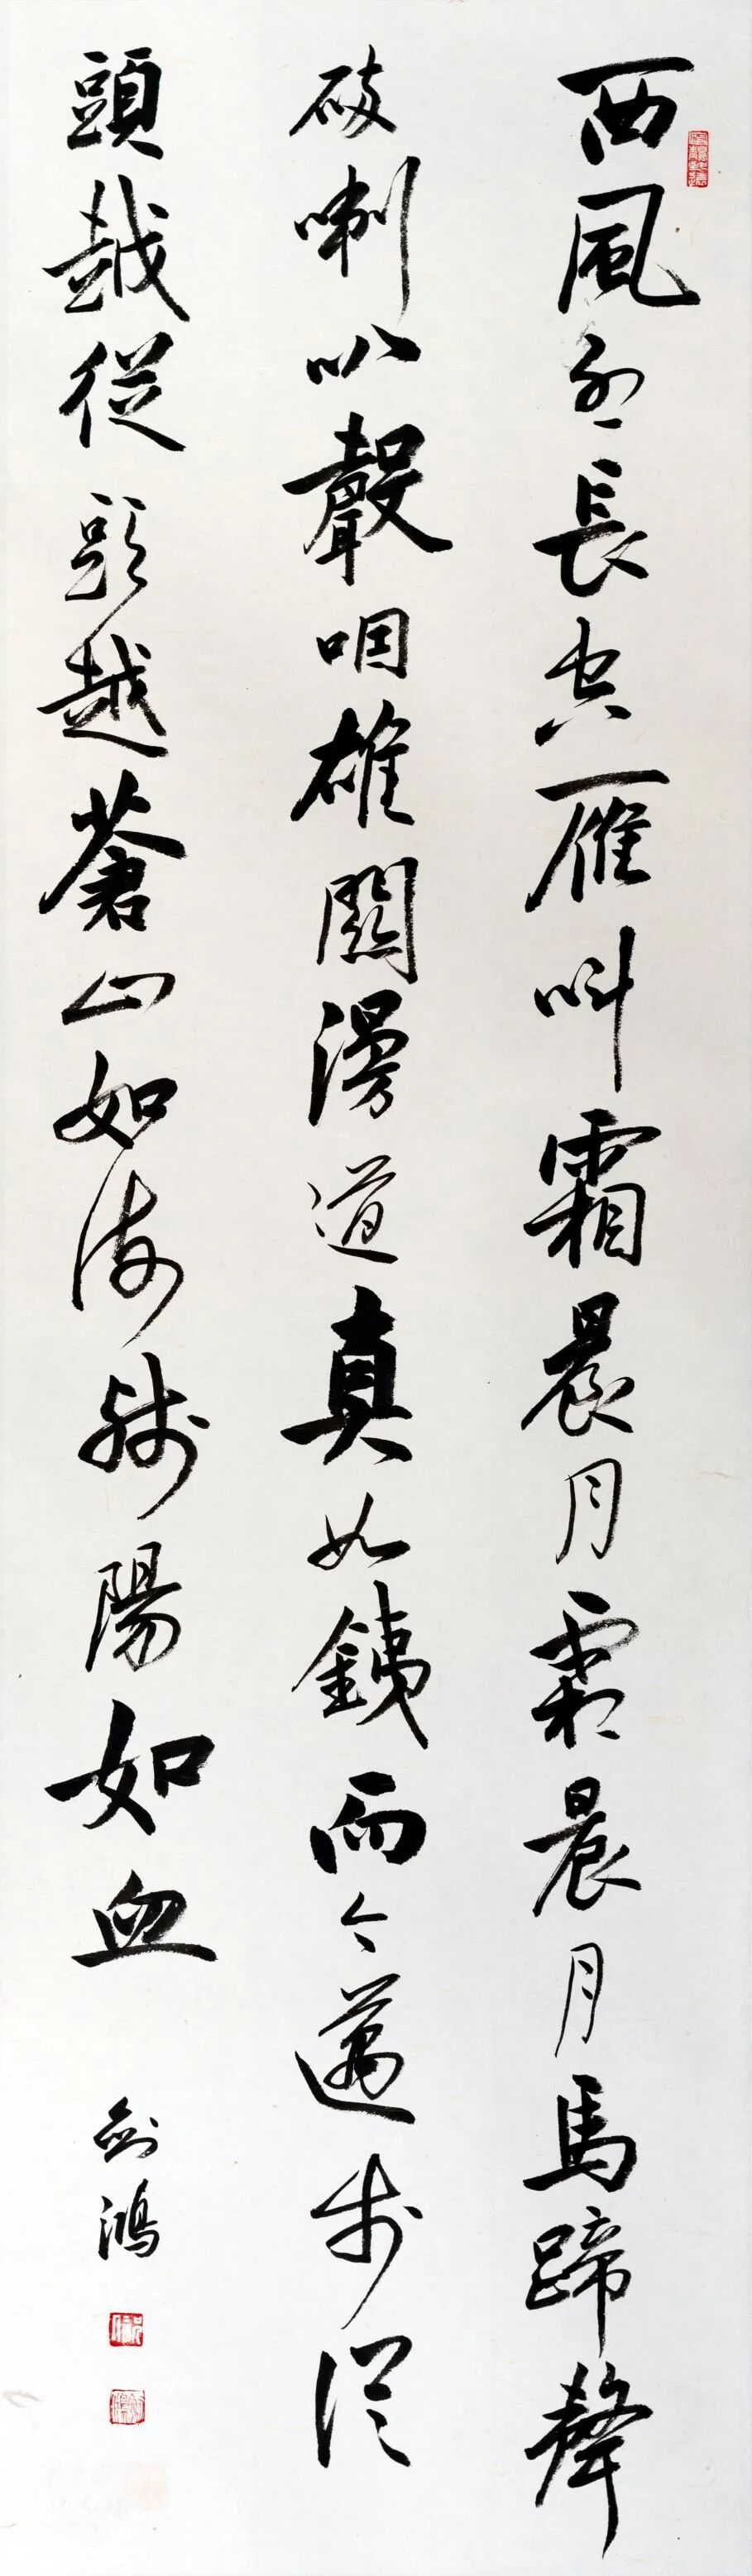 西風烈長空雁叫霜晨月霜晨月馬蹄聲
碎喇叭聲咽雄關漫道真如銕而今邁步從
頭越從頭越蒼山如海殘陽如血
劍鴻